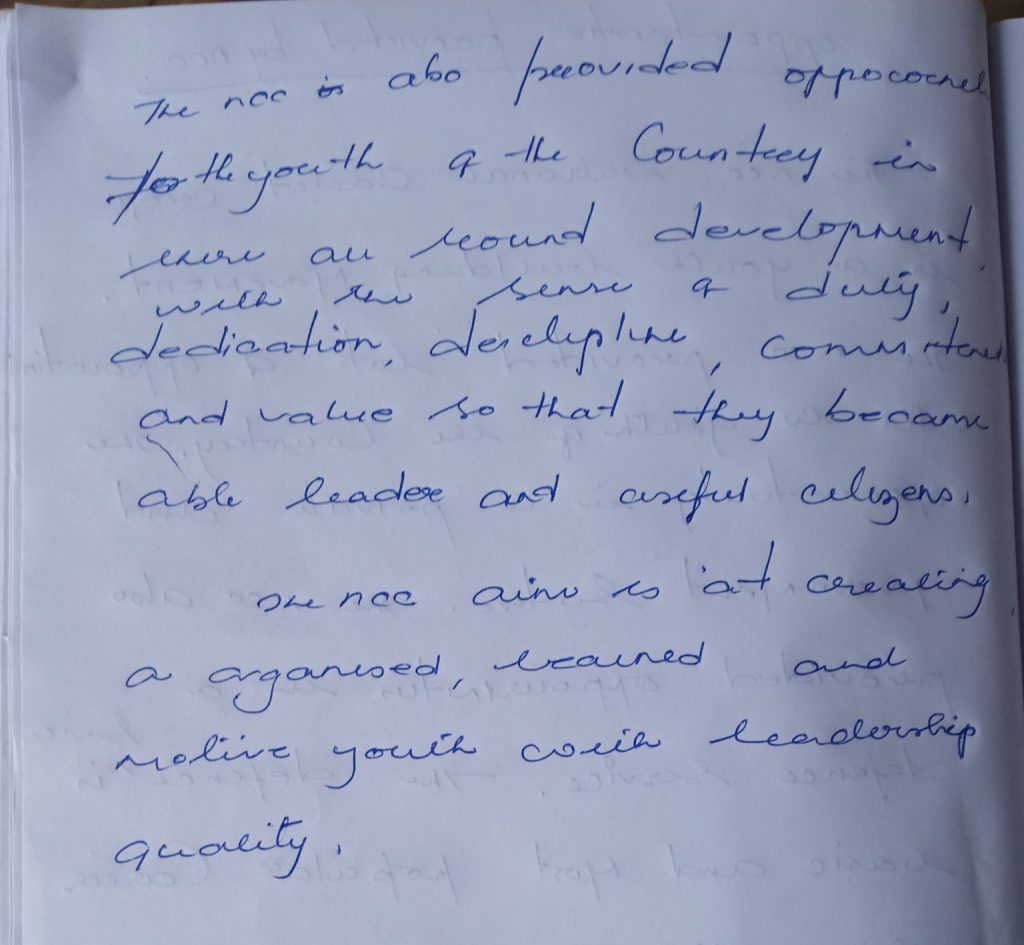 The ncc is also preovided
for the youth of the Country in
there all round development
with the sense of duty,
dedication, descipline,
and value so that they became
able leader and useful citizens.
The ncc aim is at creating
a organised, trained and
motive youth with leadership
quality.